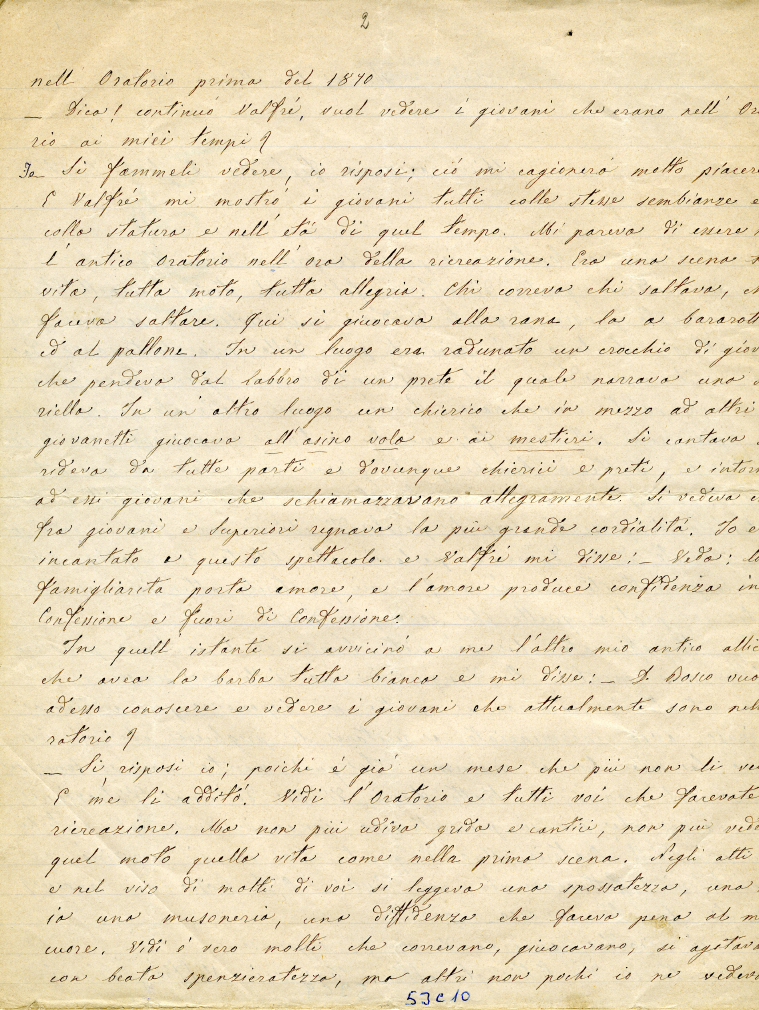 2
nell' Oratorio prima del 1870
_ Dica! continuò Valfré, vuol vedere i giovani che erano nell' Ora
rio ai miei tempi?
Io_ Sì fammeli vedere, io risposi; ciò mi cagionerà molto piacere
E Valfré mi mostrò i giovani tutti colle stesse sembianze e
colla statura e nell' età di quel tempo. Mi pareva di essere
l' antico Oratorio nell' ora della ricreazione. Era una scena
vita, tutta moto, tutta allegria. Chi correva chi saltava, c
faceva saltare. Qui si giuocava alla rana, la a bararott
ed al pallone. In un luogo era radunato un crocchio di giov
che pendeva dal labbro di un prete il quale narrava una
riella. In un' altro luogo un chierico che in mezzo ad altri
giovanetti giuocava all' asino vola e ai mestieri. Si cantava
rideva da tutte parti e dovunque chierici e preti, e intor
ad essi giovani che schiamazzavano allegramente. Si vedeva c
fra giovani e Superiori regnava la più grande cordialità. Io e
incantato a questo spettacolo. e Valfré mi disse: _ Veda: la
famigliarità porta amore, e l'amore produce confidenza in
Confessione e fuori di Confessione.
In quell' istante si avvicinò a me l'altro mio antico allie
che avea la barba tutta bianca e mi disse: _ D. Bosco vuo
adesso conoscere e vedere i giovani che attualmente sono nell
ratorio?
_ Si, risposi io; poichè è già un mese che più non li ve
E me li additò. Vidi l'Oratorio e tutti voi che facevate
ricreazione. Ma non più udiva grida e cantici, non più vede
quel moto quella vita come nella prima scena. Negli atti
e nel viso di molti di voi si leggeva una spossatezza, una
ia una musoneria, una diffidenza che faceva pena al m
cuore. Vidi è vero molti che correvano, giuocavano, si agitava
con beata spensieratezza, ma altri non pochi io ne vedeva
53C10